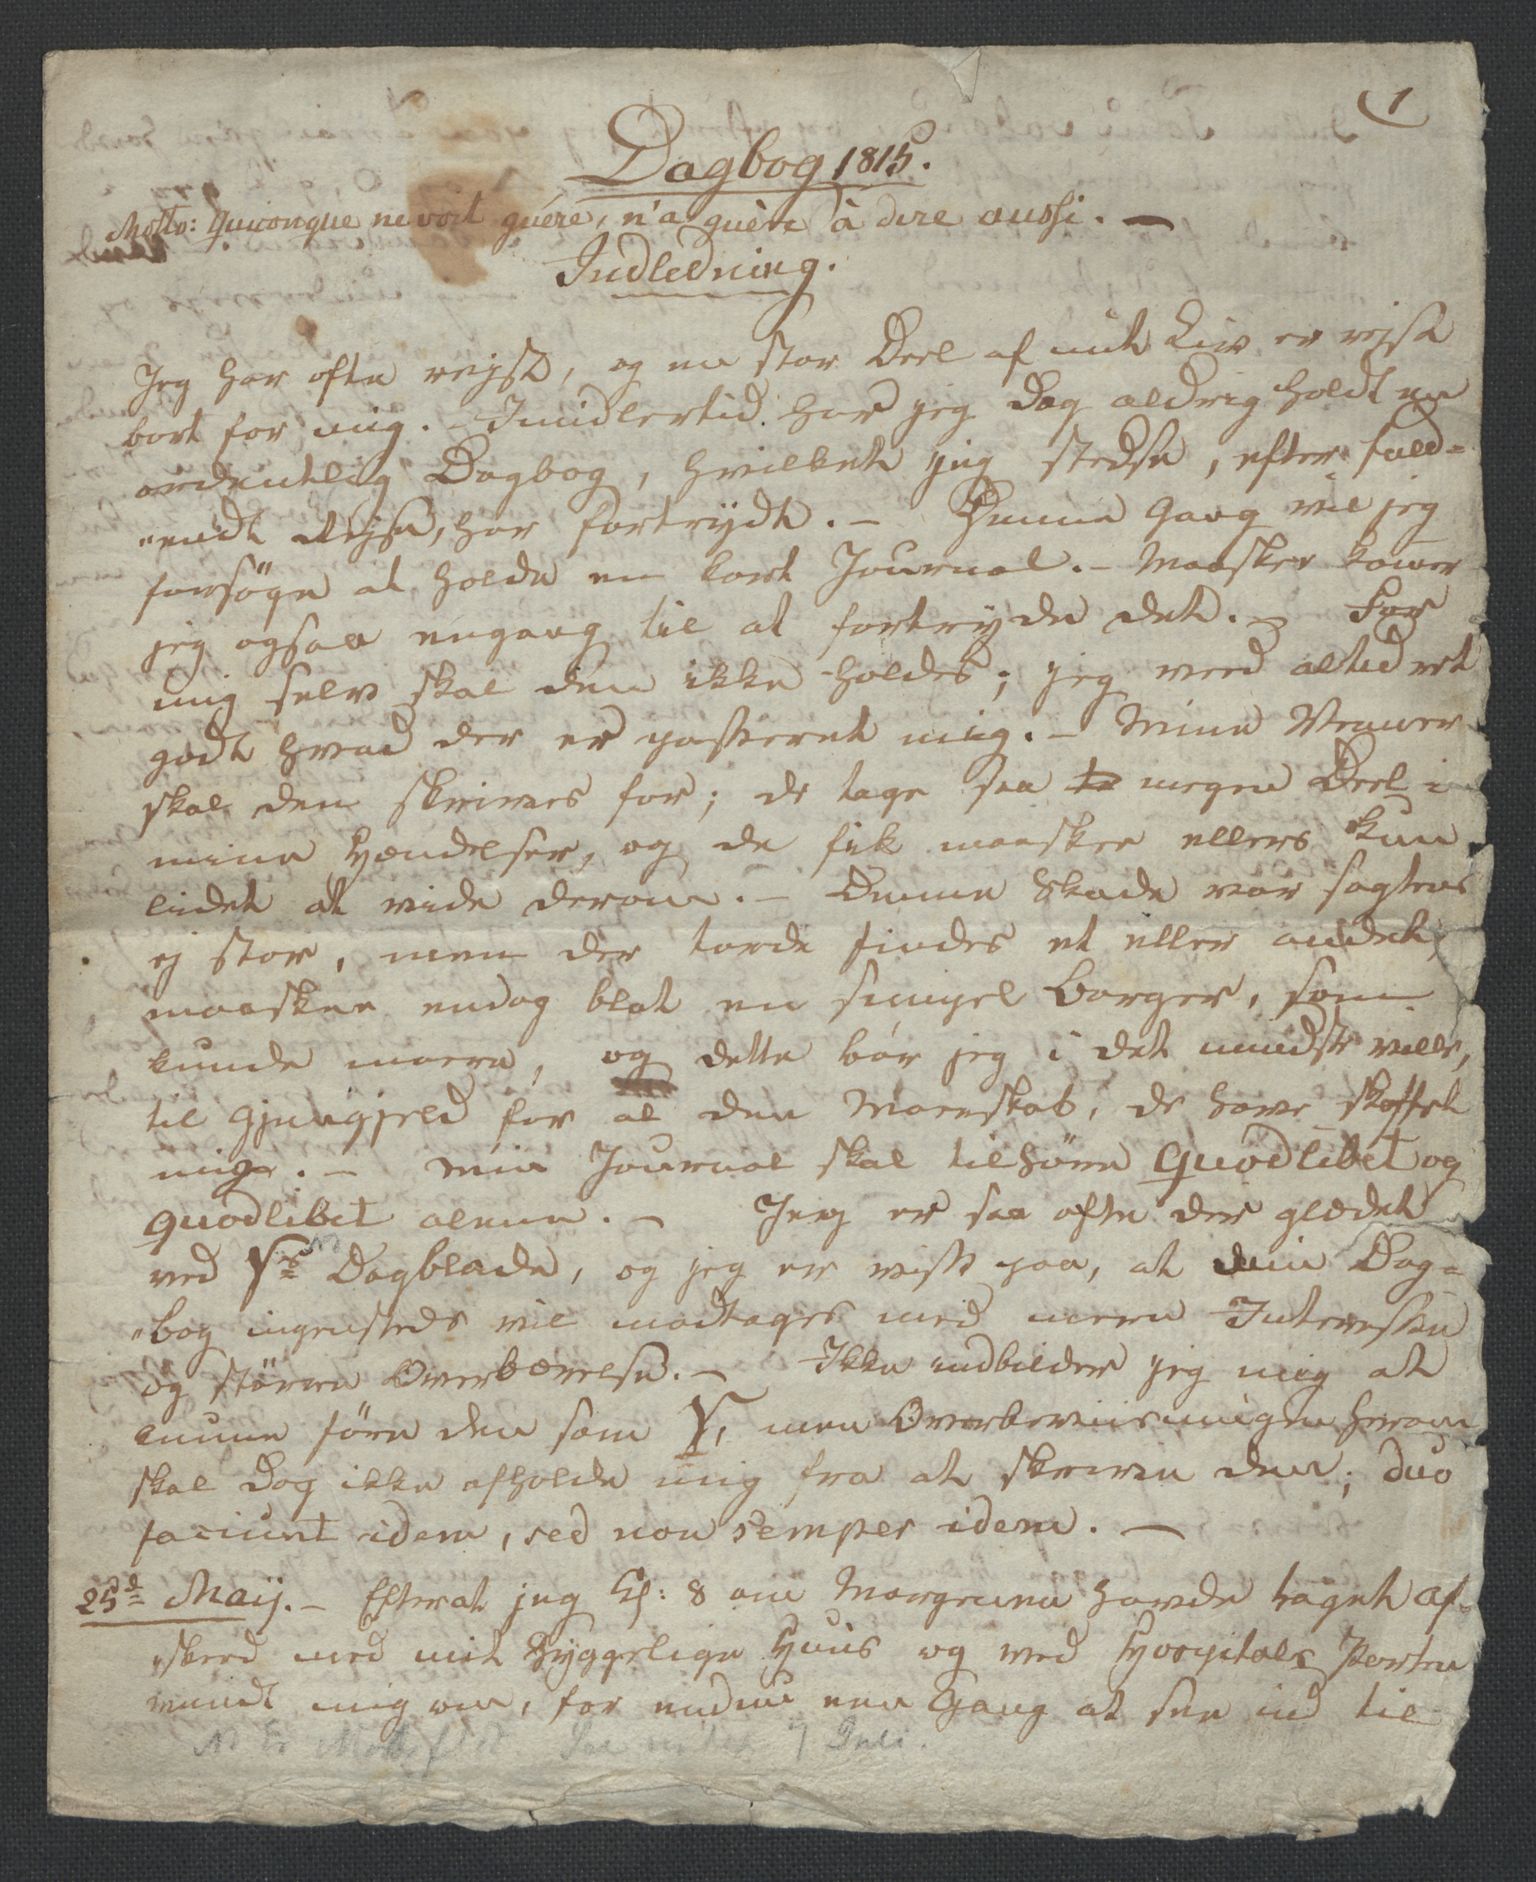 1
Dagbog 1815.
Motto: Quiconque ne voit guére, n'a guère à dire aussi. —
Indledning.
Jeg har ofte rejst, og en stor Deel af mit Liv er rejst
bort for mig. – Imidlertid har jeg dog aldrig holdt en
ordentlig Dagbog, hvilket jeg stedse, efter fuld-
"endt Rejse, har fortrydt. – Denne Gang vil jeg
forsöge at holde en kort Journal. – Maaskee kommer
jeg ogsaa engang til at fortryde det. – For
mig selv skal den ikke holdes; jeg veed altid ret
godt hvad der er passeret mig. – Mine Venner
skal den skrives for; de tage saa megen Deel i
mine Hændelser, og de fik maaskee ellers kun
lidet at vide derom. – Denne Skade var sagtens
ej stor, men der torde findes et eller andet,
maaskee endog blot en simpel Borger, som
kunde more, og dette bör jeg i det mindste ville,
til Gjengjeld for al den Moerskab, de have skaffet
mig. – Min Journal skal tilhöre Quodlibet og
Quodlibet alene. – Jeg er saa ofte der glædet
ved Ys Dagblade, og jeg er vis paa, at min Dag-
"bog ingensteds vil modtages med mere Interesse
og större Overbærelse. – Ikke indbilder jeg mig at
kunne före den som Y, men Overbeviisningen herom
skal dog ikke afholde mig fra at skrive den; duo
faciunt idem, sed non semper idem. —
25d Maij. – Efterat jeg Kl: 8 om Morgenen havde taget Af-
"skeed med mit hyggelige Huus og ved Hospitals Porten
vendt mig om, for endnu een Gang at see ind til
7 Juli.